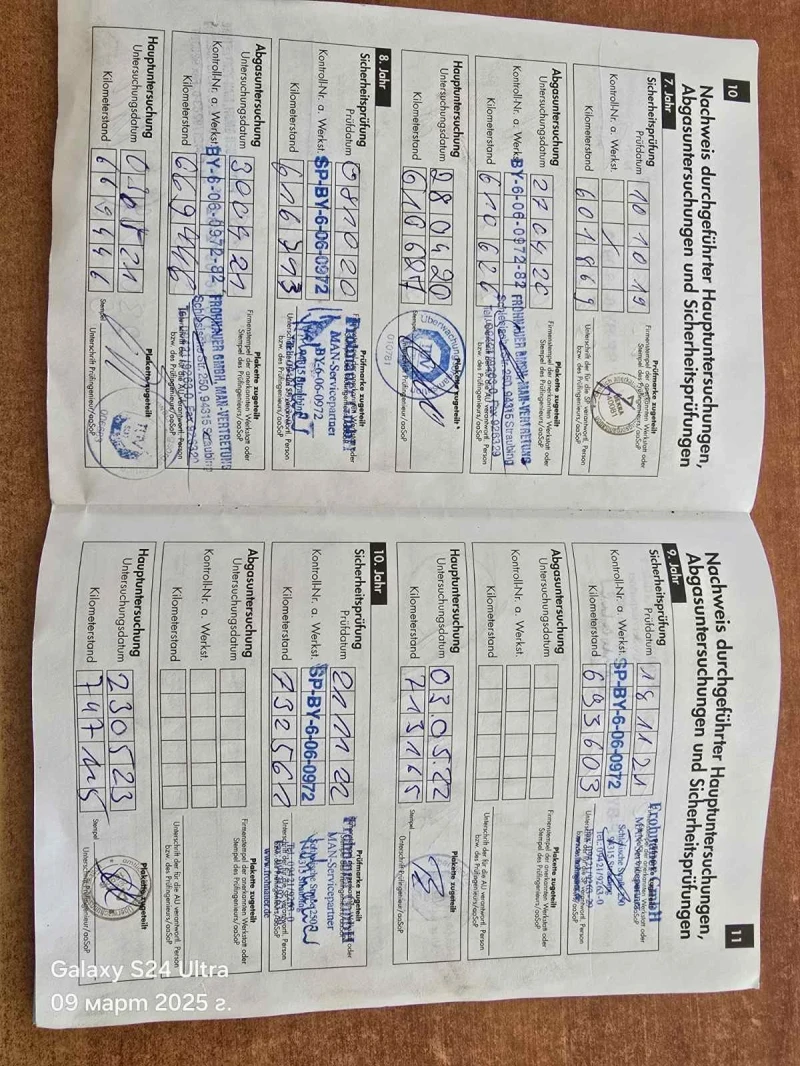 10
Nachweis durchgeführter Hauptuntersuchungen,
Abgasuntersuchungen und Sicherheitsprüfungen
7. Jahr
Sicherheitsprüfung
Prüfdatum 10 10 19
Kontroll-Nr. a. Werkst. X
Kilometerstand 601869
Prüfmarke zugeteilt
Firmenstempel der anerkannten Werkstatt oder
Unterschrift der für die SP verantwortl. Person
bzw. des Prüfingenieurs/aaSoP
Abgasuntersuchung
Untersuchungsdatum 270420
Kontroll-Nr. a. Werkst. BY-6-06-0972-82
Kilometerstand 610626
Plakette zugeteilt
Firmenstempel der anerkannten Werkstatt oder
Stempel des Prüfingenieurs/aaSoP
FROHNAUER GMBH, MAN-VERTRETUNG
Schlesische Str. 250, 94315 Straubing
Hauptuntersuchung
Untersuchungsdatum 280420
Kilometerstand 610627
Plakette zugeteilt
Unterschrift Prüfingenieur/aaSoP
8. Jahr
Sicherheitsprüfung
Prüfdatum 081020
Kontroll-Nr. a. Werkst. SP-BY-6-06-0972
Kilometerstand 616393
Prüfmarke zugeteilt
MAN-Servicepartner
BY-6-06-0972
bzw. des Prüfingenieurs/aaSoP
Abgasuntersuchung
Untersuchungsdatum 300421
Kontroll-Nr. a. Werkst. BY-6-06-0972-82
Kilometerstand 669446
Plakette zugeteilt
Firmenstempel der anerkannten Werkstatt oder
Stempel des Prüfingenieurs/aaSoP
FROHNAUER GMBH, MAN-VERTRETUNG
Schlesische Str. 250, 94315 Straubing
bzw. des Prüfingenieurs/aaSoP
Hauptuntersuchung
Untersuchungsdatum 030521
Kilometerstand 669446
Stempel
Plakette zugeteilt
Unterschrift Prüfingenieur/aaSoP
11
Nachweis durchgeführter Hauptuntersuchungen,
Abgasuntersuchungen und Sicherheitsprüfungen
9. Jahr
Sicherheitsprüfung
Prüfdatum 181121
Kontroll-Nr. a. Werkst. SP-BY-6-06-0972
Kilometerstand 693603
Frohnauer GmbH
MAN-Servicepartner
Abgasuntersuchung
Untersuchungsdatum
Kontroll-Nr. a. Werkst.
Kilometerstand
Plakette zugeteilt
Firmenstempel der anerkannten Werkstatt oder
Stempel des Prüfingenieurs/aaSoP
Unterschrift der für die AU verantwortl. Person
bzw. des Prüfingenieurs/aaSoP
Hauptuntersuchung
Untersuchungsdatum 030522
Kilometerstand 713165
Stempel
Plakette zugeteilt
Unterschrift Prüfingenieur/aaSoP
10. Jahr
Sicherheitsprüfung
Prüfdatum 211122
Kontroll-Nr. a. Werkst. SP-BY-6-06-0972
Kilometerstand 732561
Prüfmarke zugeteilt
Frohnauer GmbH
MAN-Servicepartner
Abgasuntersuchung
Untersuchungsdatum
Kontroll-Nr. a. Werkst.
Kilometerstand
Plakette zugeteilt
Firmenstempel der anerkannten Werkstatt oder
Stempel des Prüfingenieurs/aaSoP
Unterschrift der für die AU verantwortl. Person
bzw. des Prüfingenieurs/aaSoP
Hauptuntersuchung
Untersuchungsdatum 230523
Kilometerstand 747115
Stempel
Plakette zugeteilt
Unterschrift Prüfingenieur/aaSoP
Galaxy S24 Ultra
09 март 2025 г.